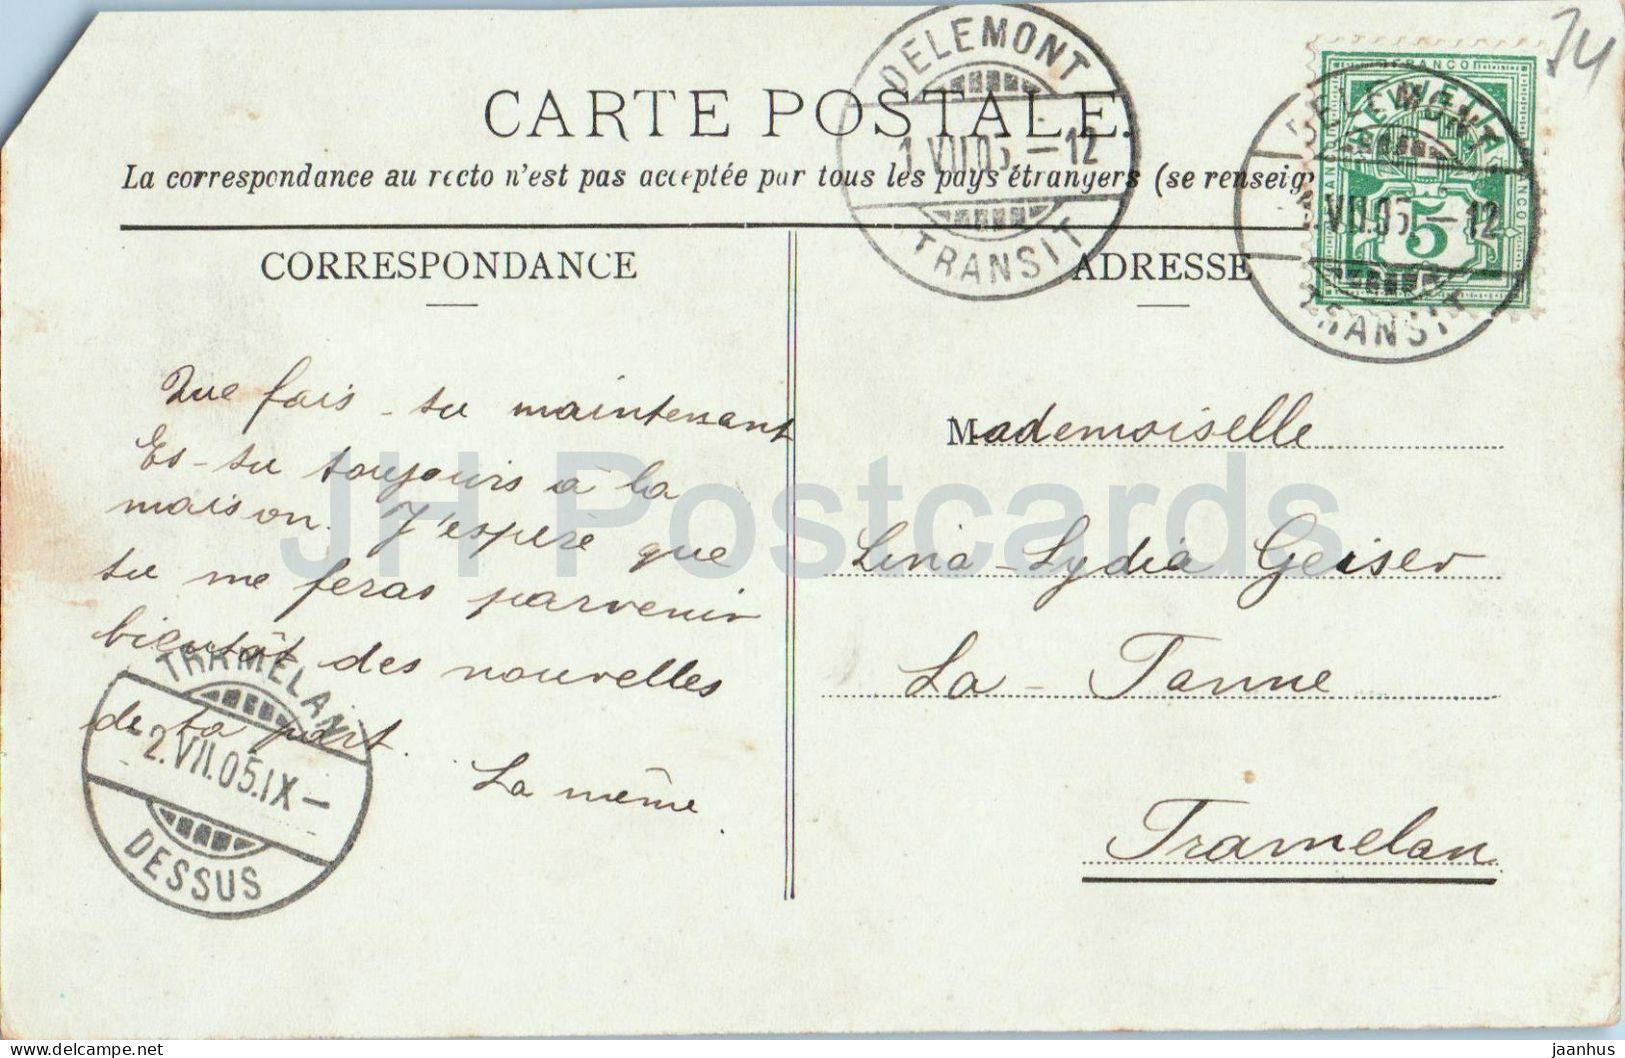 CARTE POSTALE.
La correspondance au recto n'est pas acceptée par tous les pays étrangers (se renseig
CORRESPONDANCE
ADRESSE
DELEMONT
1.VII.05.-12
TRANSIT
DELEMONT
VII.05.-12
TRANSIT
FRANCO
HELVETIA
FRANCO
5
74
Que fais-tu maintenant
Es-tu toujours à la
maison. J'espère que
tu me feras parvenir
bientôt des nouvelles
de ta part.
La même.
TRAMELAN
2.VII.05.IX-
DESSUS
Mademoiselle
Lina-Lydia Geiser
La-Tanne
Tramelan
JH Postcards
www.delcampe.net
jaanhus